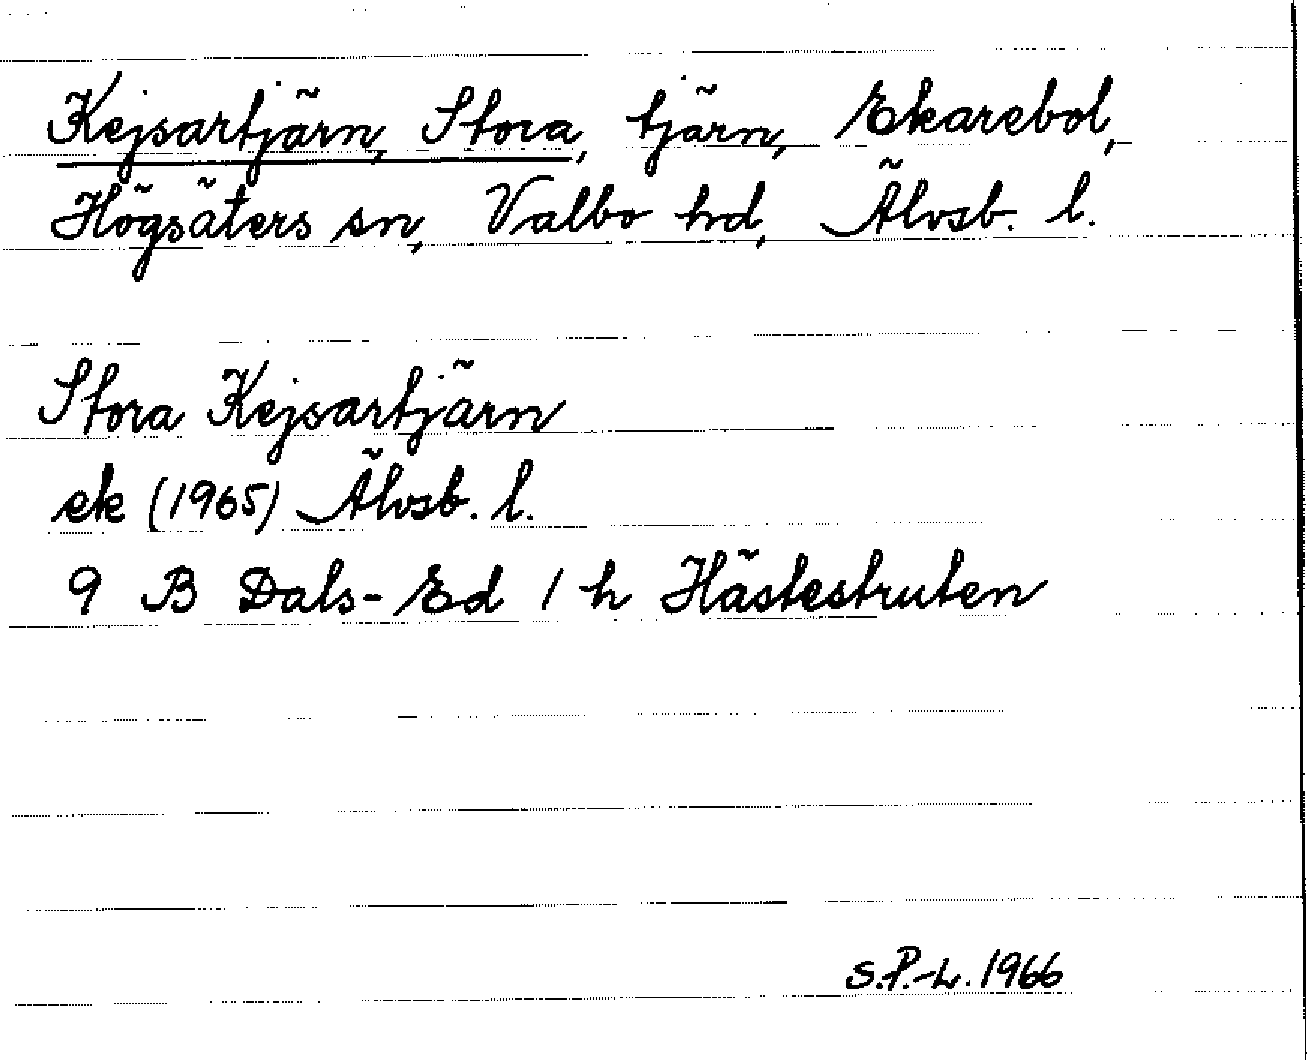 Kejsartjärn, Stora, tjärn, Ekarebol,
Högsäters sn, Valbo hd, Älvsb. l.
Stora Kejsartjärn
ek (1965) Älvsb. l.
9 B Dals-Ed 1 h Hästestruten
S.P.-L. 1966